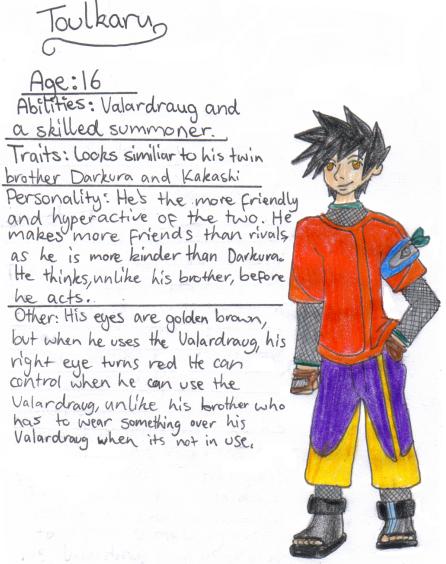 Toulkaru
Age:16
Abilities: Valardraug and
a skilled summoner.
Traits: Looks similiar to his twin
brother Darkura and Kakashi
Personality: He's the more friendly
and hyperactive of the two. He
makes more friends than rivals,
as he is more kinder than Darkura.
He thinks, unlike his brother, before
he acts.
Other: His eyes are golden brown,
but when he uses the Valardraug, his
right eye turns red He can
control when he can use the
Valardraug, unlike his brother who
has to wear something over his
Valardraug when its not in use.